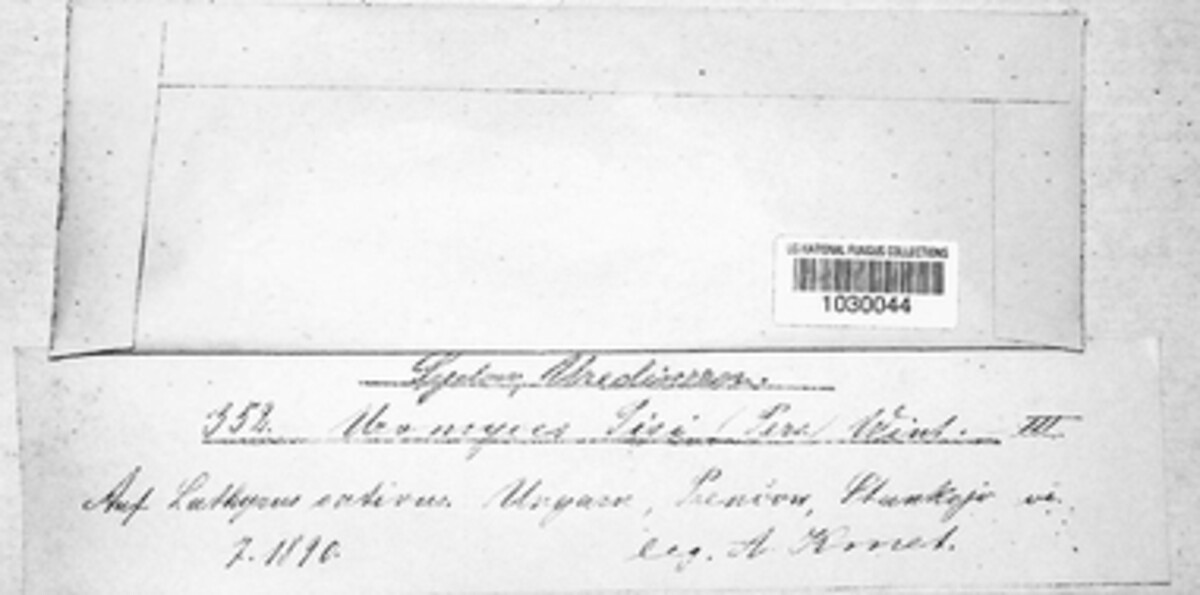 US NATIONAL FUNGUS COLLECTIONS
1030044
Sydow, Uredineen.
352. Uromyces Pisi (Pers.) Wint. III
Auf Lathyrus sativus. Ungarn, Prencow,
7. 1890. leg. A Kmet.